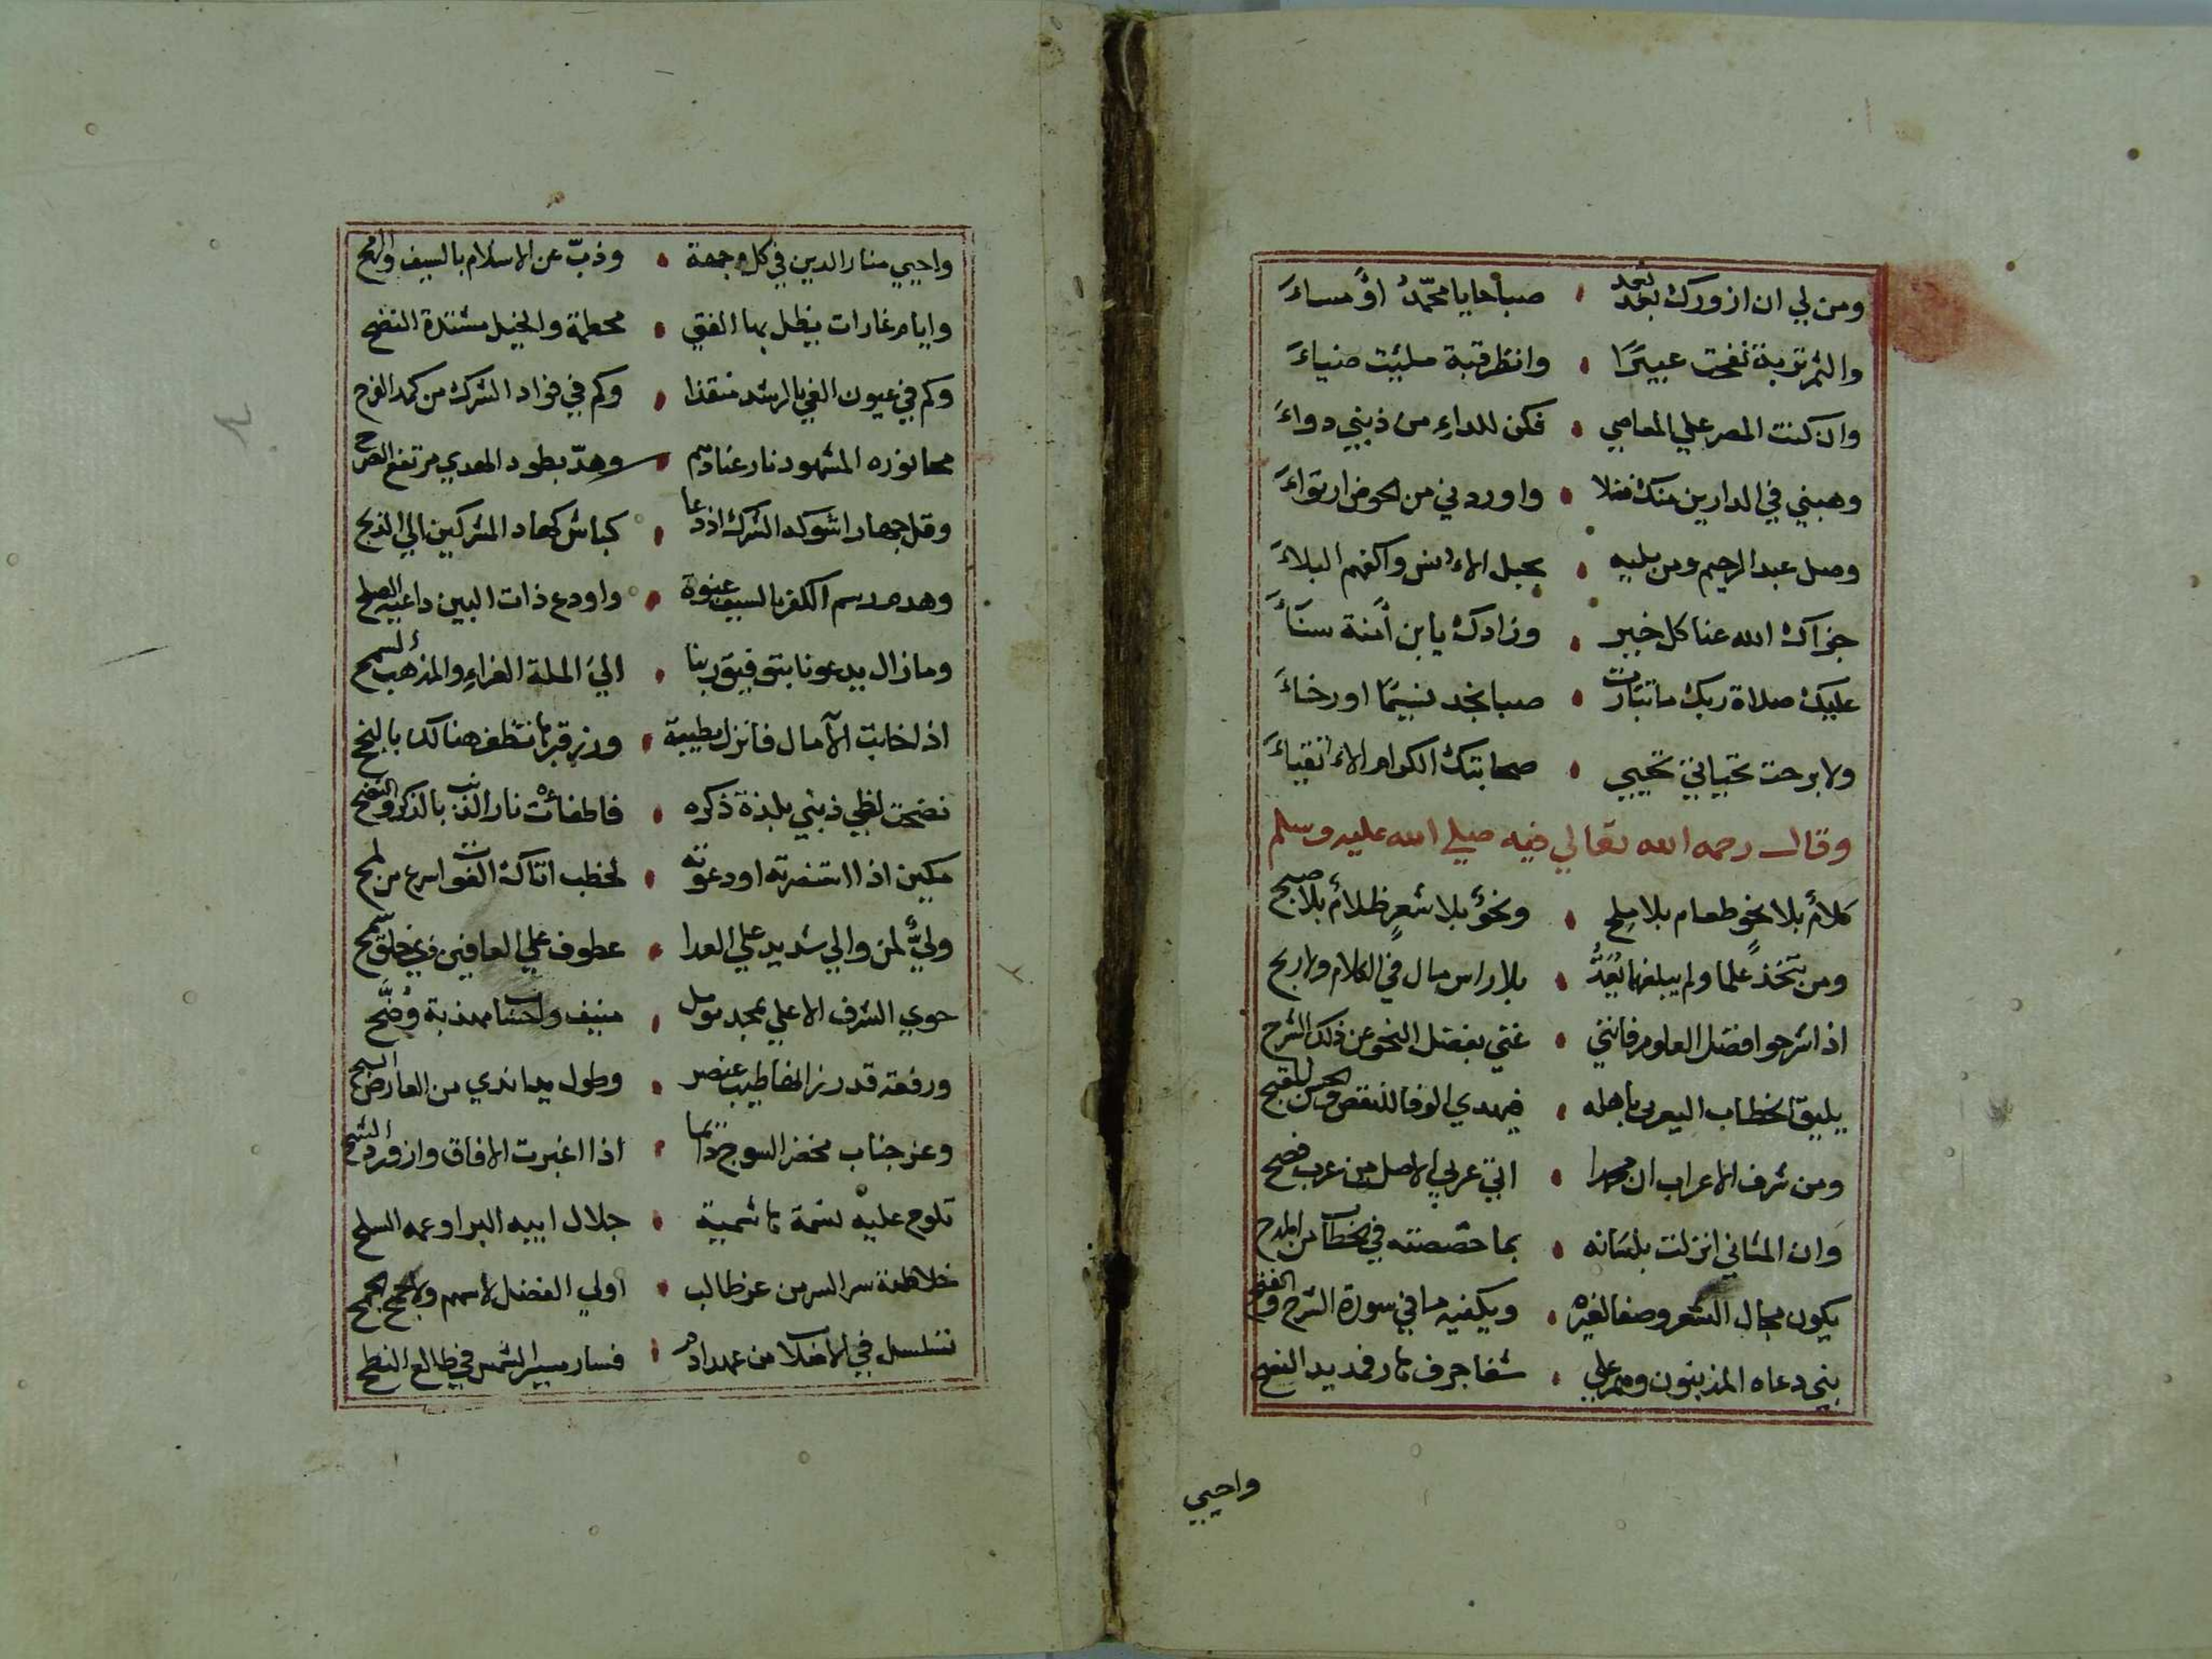 ومن لي ان ازورك بعد بعد • صباحا يا محمد او مساء
والثم تربة نفحت عبيرا • وانظر قبة ملئت ضياء
وان كنت المصر علي المعاصي • فكن للداء من ذنبي دواء
وهبني في الدارين منك فضلا • واوردني من الحوض ارتواء
وصل عبد الرحيم ومن يليه • بحبل الانس واكفهم البلاء
جزاك الله عنا كل خير • وزادك يا بن آمنة سناء
عليك صلاة ربك ما تبارت • صبا نجد نسيما او رخاء
ولا برحت تحياتي تحيي • صحابتك الكرام الاتقياء
وقال رحمه الله تعالي فيه صلي الله عليه وسلم
كلام بلا نحو طعام بلا ملح • ونحو بلا شعر ظلام بلا صبح
ومن يتخذ علما ولم يبلغهما يعد • بلا راس مال في الكلام ولا ربح
اذا شرحوا فضل العلوم فانني • غني بفضل النحو عن ذلك الشرح
يليق الخطاب اليعربي باهله • فيهدي الوفا للنقص والحسن للقبح
ومن شرف الاعراب ان محمدا • اتي عربي الاصل من عرب فصح
وان المثاني انزلت بلسانه • بما خصصته في الخطاب من المدح
يكون مجال الشعر وصفا لغيره • ويكفيه ما في سورة الشرح والفتح
نبي دعاه المذنبون وهم علي • شفا جرف هار فمد يد النصح
واحيي
واحيي منار الدين في كل وجهة • وذب عن الاسلام بالسيف والرمح
وايام غارات يظل بها الفتي • محطمة والخيل مشتدة النضح
وكم في عيون الغي بالرشد منقذا • وكم في فواد الشرك من كمد القرح
محا نوره المشهود نار عنادهم • وهد بطود الهدي مرتفع الصرح
وقل جهارا شوكة الشرك اذ دعا • كباش كهاد المشركين الي الذبح
وهدم رسم الكفر بالسيف عنوة • واودع ذات البين داعية الصلح
وما زال يدعونا بتوفيق ربنا • الي الملة الغراء والمذهب السمح
اذا خابت الآمال فانزل بطيبة • وزر قبرها تظفر هنالك بالنجح
نضحت لظي ذنبي بلذة ذكره • فاطفات نار الذنب بالذكر والنضح
مكين اذا استنصرته او دعوته • لخطب اتاك الغوث اسرع من لمح
ولي لمن والي شديد علي العدا • عطوف علي العافين ذي خلق سمح
حوي الشرف الاعلي بمجد موثل • منيف واحساب مهذبة وضح
ورفعة قدر زانها طيب عنصر • وطول يد اندي من العارض السح
وعز جناب مخضر السوح دائما • اذا اغبرت الافاق وازور ذو الشح
تلوح عليه نسمة هاشمية • جلال ابيه البر او عمه السلح
خلاصة سر السر من عز غالب • اولي الفضل لا سهم ولا جمح الجمح
تسلسل في الاصلاب من عهد ادم • فسار مسير الشمس في طالع النطح